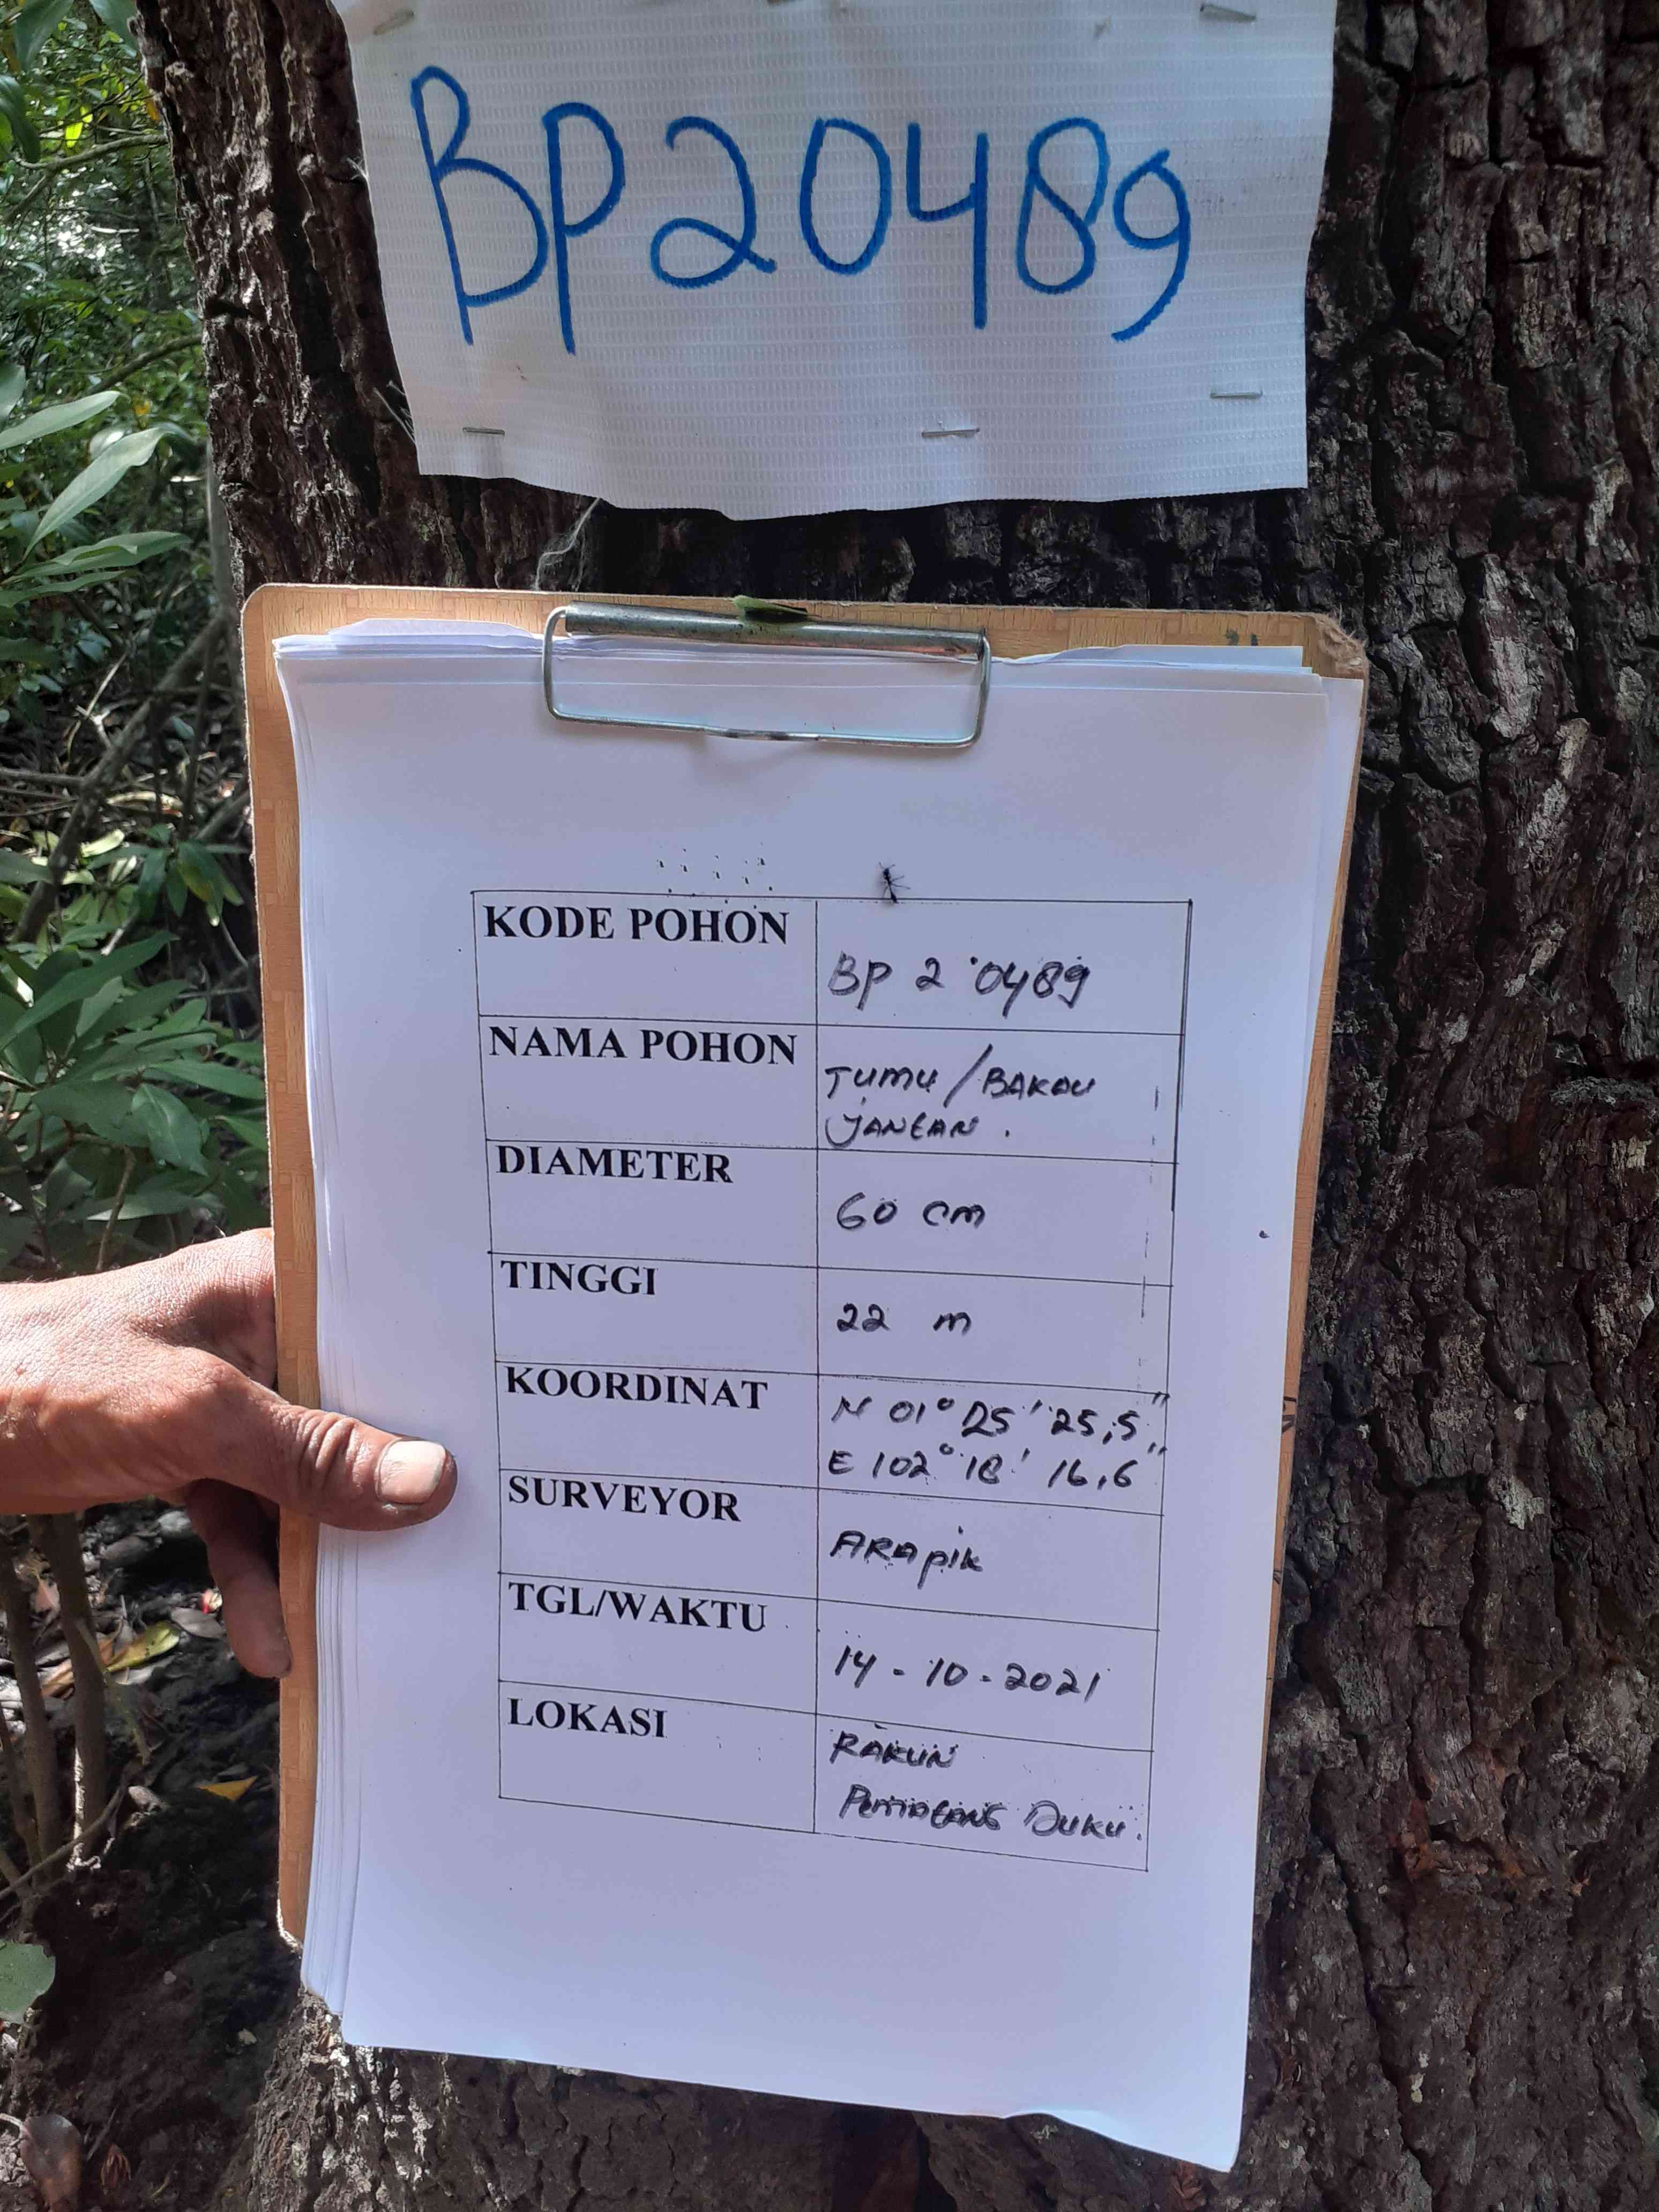 BP20489
KODE POHON
BP 2 0489
NAMA POHON
TUMU/BAKAU
JANTAN.
DIAMETER
60 cm
TINGGI
22 m
KOORDINAT
N 01° 25' 25,5"
E 102° 18' 16,6"
SURVEYOR
ARAPIK
TGL/WAKTU
14-10-2021
LOKASI
RAKUN
PEMATANG DUKU.